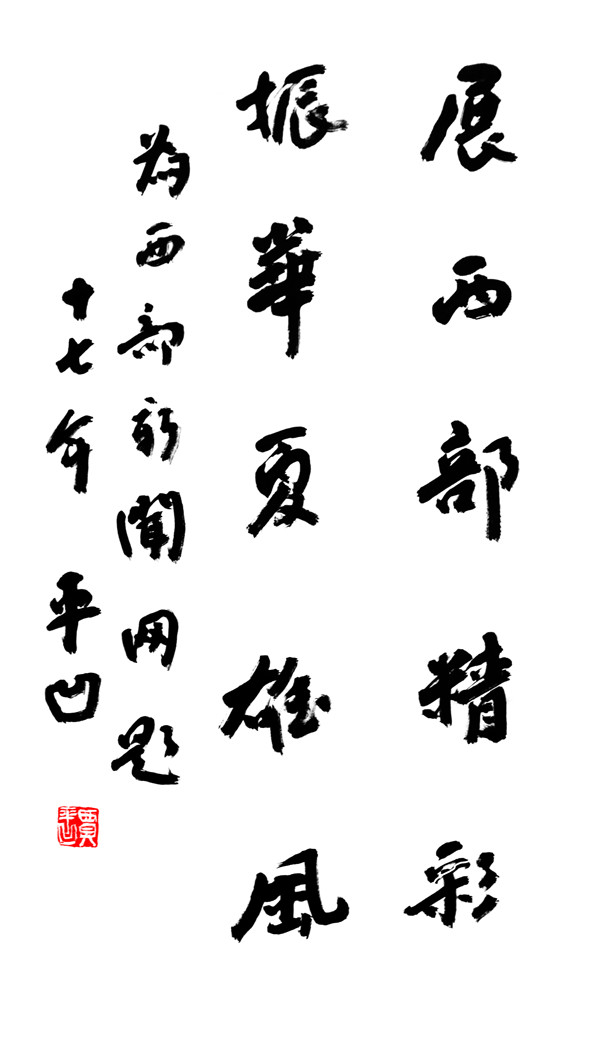 展西部精彩
振華夏雄風
為西部新聞网题
十七年 平凹
賈平凹